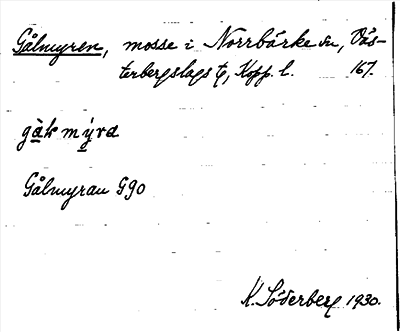 Gålmyren, mosse i Norrbärke sn, Väs-
terbergslags tg, Kopp. l. 167.
Gålmyran G90
K. Söderberg 1930.